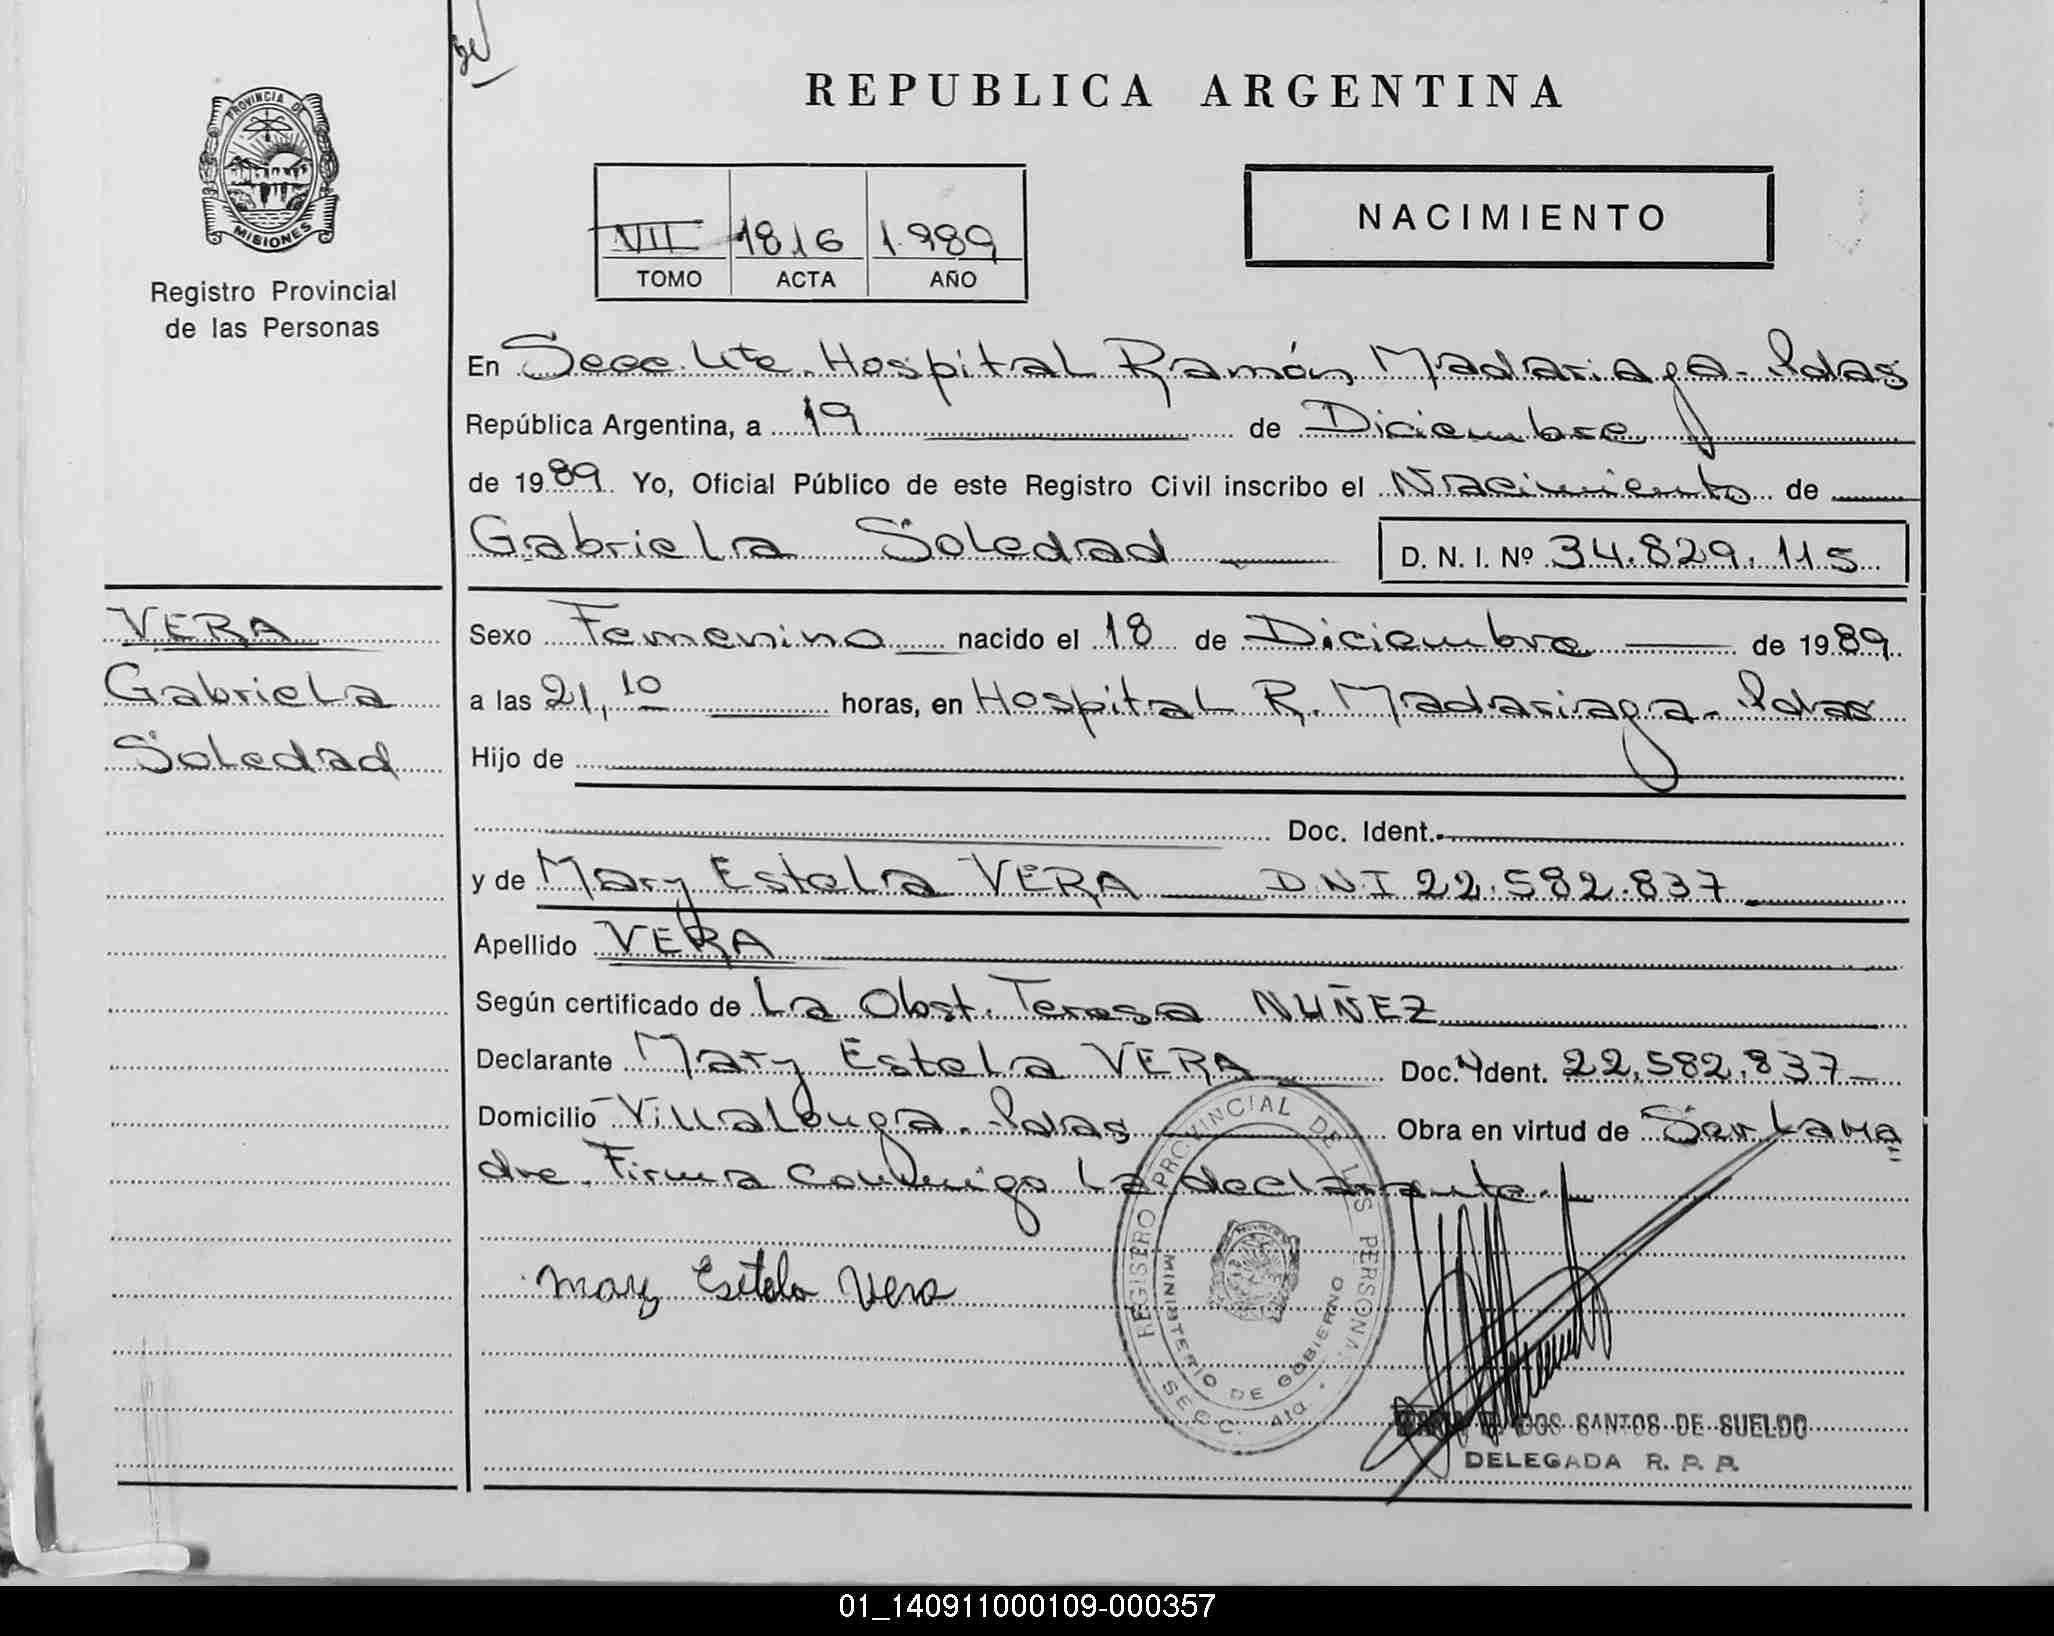 REPUBLICA ARGENTINA
PROVINCIA DE
MISIONES
Registro Provincial
de las Personas
NACIMIENTO
VII 1816 1.989
TOMO ACTA AÑO
En Secc 4te. Hospital Ramón Madariaga - Pdas
República Argentina, a 19 de Diciembre
de 1989 Yo, Oficial Público de este Registro Civil inscribo el Nacimiento de
Gabriela Soledad D. N. I. Nº 34.829.115
VERA
Gabriela
Soledad
Sexo Femenino nacido el 18 de Diciembre de 1989
a las 21,10 horas, en Hospital R. Madariaga - Pdas
Hijo de
Doc. Ident.
y de Mary Estela VERA D.N.I 22.582.837
Apellido VERA
Según certificado de La Obst. Teresa NUÑEZ
Declarante Mary Estela VERA Doc. Ident. 22.582.837
Domicilio Villalonga - Pdas Obra en virtud de Ser La Ma
dre. Firma Conmigo La declarante.
Mary Estela Vera
REGISTRO PROVINCIAL DE LAS PERSONAS
MINISTERIO DE GOBIERNO
SECC. 4ta
DOS SANTOS DE SUELDO
DELEGADA R. P. P.
01_140911000109-000357